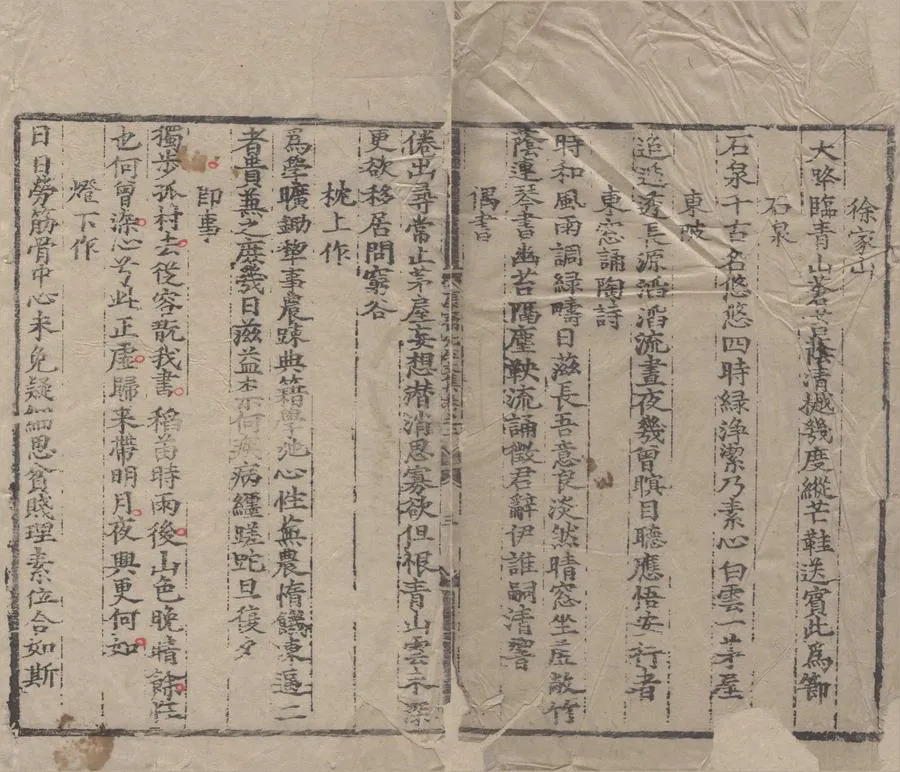 徐家山
大路臨青山蒼苔蔭清樾幾度縱芒鞋送賓此為節
石泉
石泉千古名悠悠四時緑浄潔乃素心白雲一茅屋
東陂
迢迢透長源滔滔流晝夜幾曽瞑目聽應悟安行者
東窓誦陶詩
時和風雨調緑疇日滋長吾意良淡然晴窓坐虛敞竹
蔭連琴書幽苔隔塵鞅流誦徵君辭伊誰嗣清響
偶書
倦出尋常止茅屋妄想潜消思寡欲但恨青山雲不深
更欲移居問窮谷
枕上作
為學曠鋤犂事農踈典籍學弛心性蕪農惰饑凍逼二
者貴兼之庶幾日滋益柰何疾病纒蹉跎旦復夕
即事
獨步孤村去從容散我書稻苗時雨後山色晚晴餘性
也何曽染心兮此正虛歸来帶明月夜興更何如
燈下作
日日勞筋骨中心未免疑細思貧賤理素位合如斯